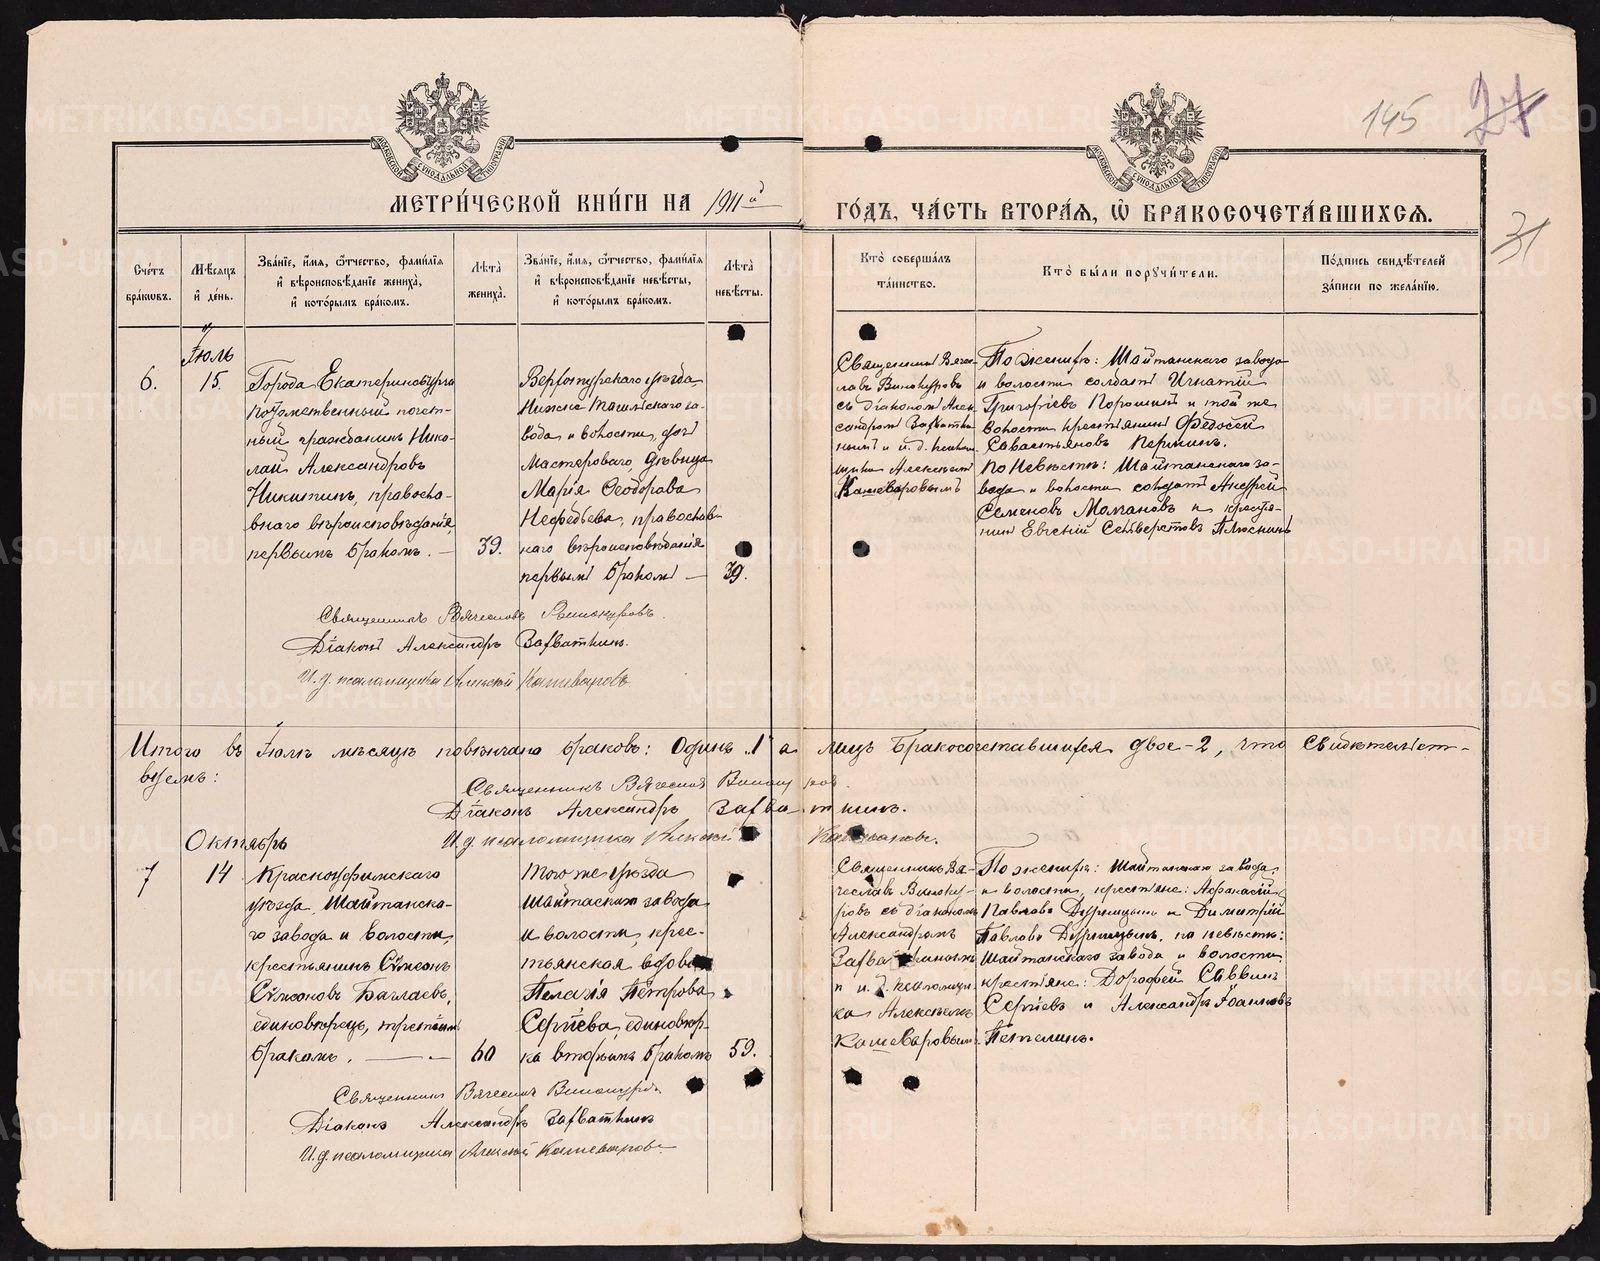 145 27
31
МЕТРИ́ЧЕСКОЙ КНИ́ГИ НА 1911й ГО́ДЪ, ЧА́СТЬ ВТОРА́Я, Ѡ҆ БРАКОСОЧЕТА́ВШИХСЯ.
Сче́тъ бра́кѡвъ.
Мѣ́сяцъ и҆ де́нь.
Зва́нїе, и҆́мя, ѻ҆́тчество, фами́лїя и҆ вѣроисповѣ́данїе жениха̀, и҆ кото́рымъ бра́комъ.
Лѣ́та̀ жениха̀.
Зва́нїе, и҆́мя, ѻ҆́тчество, фами́лїя и҆ вѣроисповѣ́данїе невѣ́сты, и҆ кото́рымъ бра́комъ.
Лѣ́та̀ невѣ́сты.
Кто̀ соверша́лъ та́инство.
Кто̀ бы́ли поручи́тели.
По́дпись свидѣ́телей за́писи по жела́нїю.
Іюль
6.
15.
Города Екатеринбурга
потомственный почет-
ный гражданинъ Нико-
лай Александровъ
Никитинъ, правосла-
внаго вѣроисповѣданія,
первымъ бракомъ. —
39.
Верхотурскаго уѣзда
Нижне Тагильскаго за-
вода и волости, дочь
Мастероваго, дѣвица
Марія Ѳеодорова
Нефедьева, православ-
наго вѣроисповѣданія
первымъ бракомъ —
39.
Священникъ Вяче-
славъ Винокуровъ
съ діакономъ Алек-
сандромъ Захватки-
нымъ и и. д. псалом-
щика Алексѣемъ
Кашеваровымъ
По женихѣ: Шайтанскаго завода
и волости солдатъ Игнатій
Григорьевъ Порошинъ и той же
волости крестьянинъ Федосей
Савастьяновъ Перминъ.
По Невѣстѣ: Шайтанскаго за-
вода и волости солдатъ Андрей
Семеновъ Молчановъ и крестья-
нинъ Евгеній Селиверстовъ Плюснинъ
Священникъ Вячеславъ Винокуровъ.
Діаконъ Александръ Захваткинъ.
И. д. псаломщика Алексѣй Кашеваровъ
Итого въ Іюлѣ мѣсяцѣ повѣнчано браковъ: Одинъ 1 а лицъ бракосочетавшихся двое - 2, что свидѣтельст-
вуемъ:
Священникъ Вячеславъ Винокуровъ
Діаконъ Александръ Захваткинъ.
И. д. псаломщика Алексѣй Кашеваровъ.
Октябрь
7
14
Красноуфимскаго
уѣзда, Шайтанска-
го завода и волости,
крестьянинъ Сѵмеонъ
Сѵмеоновъ Баглаевъ,
единовѣрецъ, третьимъ
бракомъ. —
60
того же уѣзда
Шайтанскаго завода
и волости, крес-
тьянская вдова
Пелагія Петрова
Сергѣева, единовѣр-
ка вторымъ бракомъ
59.
Священникъ Вя-
чеславъ Виноку-
ровъ съ діакономъ
Александромъ
Захваткинымъ
и и. д. псаломщи-
ка Алексѣемъ
Кашеваровымъ
По женихѣ: Шайтанскаго завода
и волости, крестьяне: Афанасій
Павловъ и Димитрій
Павловъ по невѣстѣ:
Шайтанскаго завода и волости
крестьяне: Дорофей Саввинъ
Сергѣевъ и Александръ Іоанновъ
Пѣтелинъ.
Священникъ Вячеславъ Винокуровъ.
Діаконъ Александръ Захваткинъ
И. д. псаломщика Алексѣй Кашеваровъ
METRIKI.GASO-URAL.RU